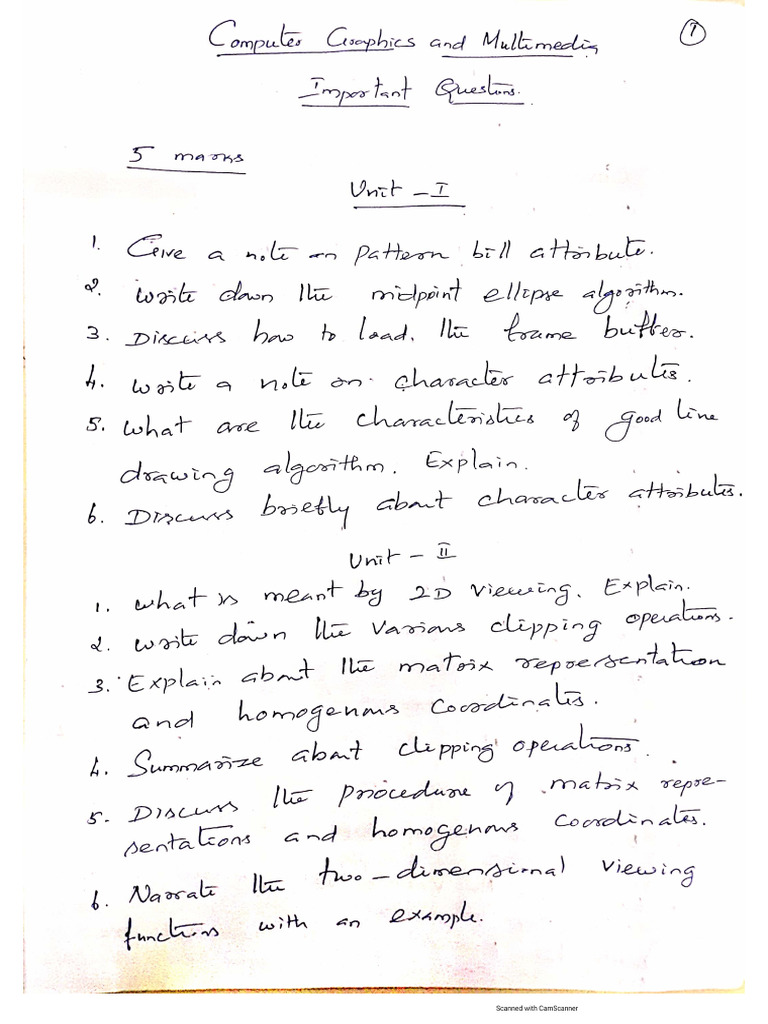 Computer Graphics and Multimedia
1
Important Questions.
5 marks
Unit - I
1. Give a note on pattern bill attribute.
2. Write down the midpoint ellipse algorithm.
3. Discuss how to load. the frame buffer.
4. Write a note on character attributes.
5. What are the characteristics of good line
drawing algorithm. Explain.
6. Discuss briefly about character attributes.
Unit - II
1. What is meant by 2D viewing. Explain.
2. Write down the various clipping operations.
3. Explain about the matrix representation
and homogenous coordinates.
4. Summarize about clipping operations.
5. Discuss the procedure of matrix repre-
sentations and homogenous coordinates.
6. Narrate the two-dimensional viewing
functions with an example.
Scanned with CamScanner